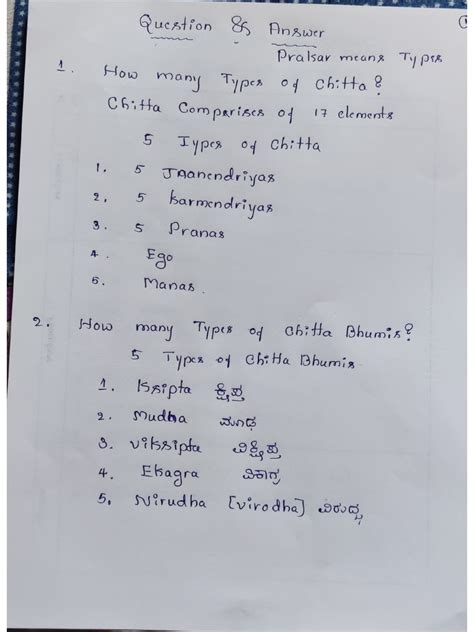 Question & Answer
Pralsar means Types
1. How many Types of Chitta?
Chitta Comprises of 17 elements
5 Types of Chitta
1. 5 JAanendriyas
2, 5 Karmendriyas
3. 5 Pranas
4. Ego
5. Manas.
2. How many Types of Chitta Bhumis?
5 Types of Chitta Bhumis
1. Kssipta ಕ್ಷಿಪ್ತ
2. Mudha ಮೂಢ
3. Vikssipta ವಿಕ್ಷಿಪ್ತ
4. Ekagra ಏಕಾಗ್ರ
5. Nirudha [virodha] ವಿರುದ್ಧ